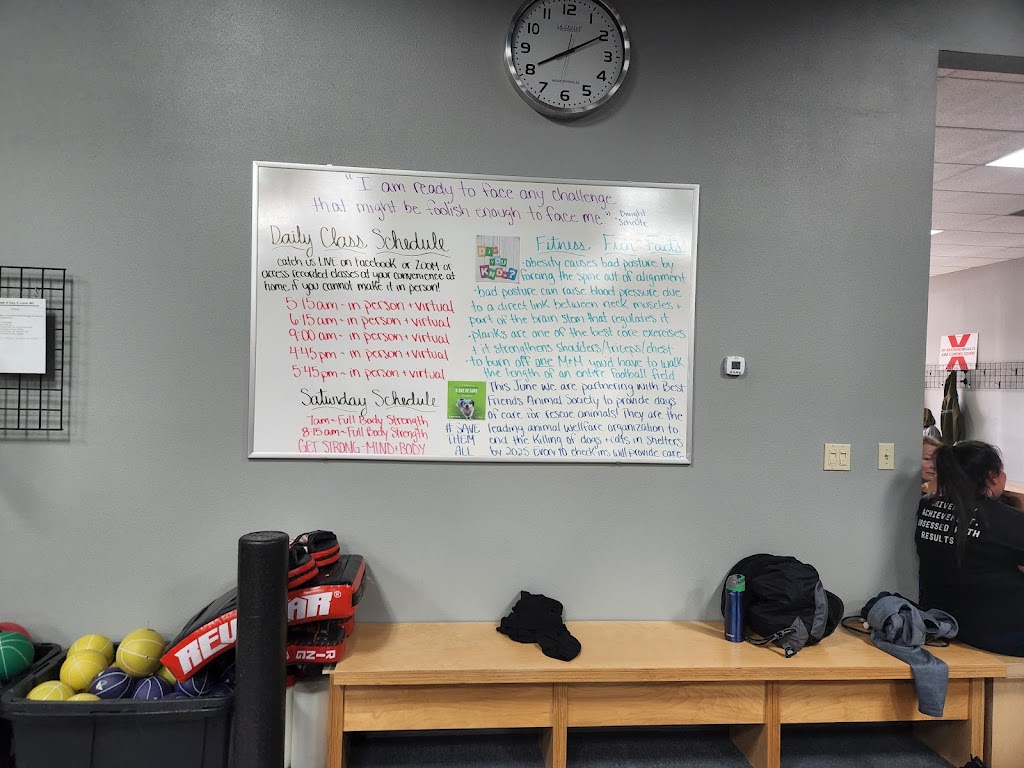 12
11
1
10
2
9
3
8
4
7
5
6
"I am ready to face any challenge
that might be foolish enough to face me."
Dwight
Schrute
Daily Class Schedule
catch us LIVE on facebook or ZOOM or
access recorded classes at your convenience at
home, if you cannot make it in person!
5:15am~ in person + virtual
6:15 am~ in person + virtual
9:00 am~ in person + virtual
4:45 pm~ in person + virtual
5:45 pm~ in person + virtual
Saturday Schedule
7am~ Full Body Strength
8:15am~ Full Body Strength
GET STRONG~MIND+BODY
DID
YOU
KNOW?
Fitness Fun Facts
·obesity causes bad posture by
forcing the spine out of alignment
·bad posture can raise blood pressure due
to a direct link between neck muscles +
part of the brain stem that regulates it
·planks are one of the best core exercises
+ it strengthens shoulders/triceps/chest
·to burn off one M&M you'd have to walk
the length of an entire football field
#SAVE
THEM
ALL
This June we are partnering with Best
Friends Animal Society to provide days
of care for rescue animals! They are the
leading animal welfare organization to
end the killing of dogs + cats in shelters
by 2025 Every 10 check ins will provide care.
REV
AR®
RING
X
ACHIEVE
OBSESSED WITH
RESULTS